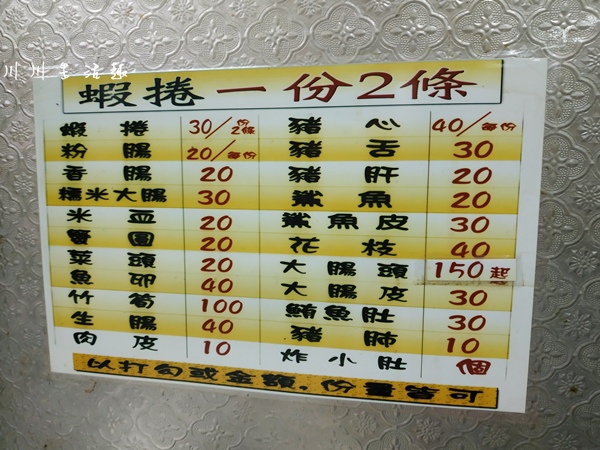 蝦捲一份2條
蝦捲 30/2條份 豬心 40/每份
粉腸 20/每份 豬舌 30
香腸 20 豬肝 20
糯米大腸 30 鯊魚 20
米血 20 鯊魚皮 30
蟹圓 20 花枝 40
菜頭 20 大腸頭 150起
魚卵 40 大腸皮 30
竹筍 100 鮪魚肚 30
生腸 40 豬肺 10
肉皮 10 炸小肚 個
以打勾或金額,份量皆可